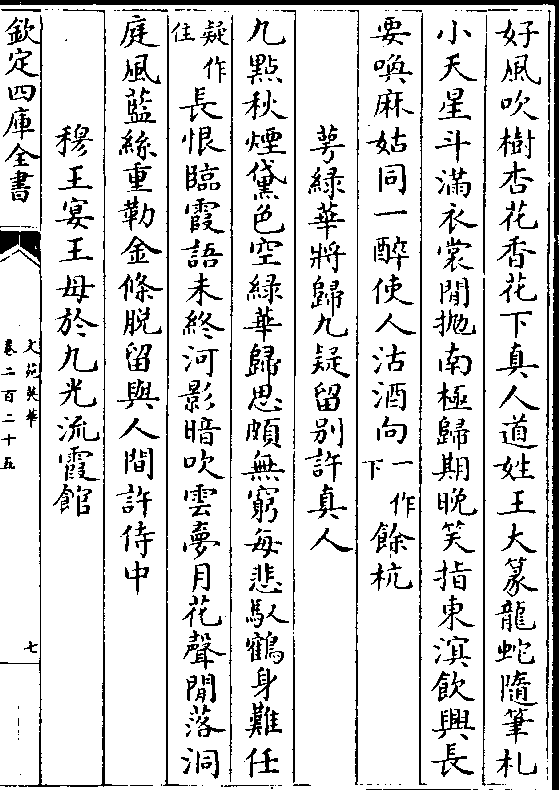 好風吹樹杏花香花下真人道姓王大篆龍蛇隨筆札
小天星斗滿衣裳閒抛南極歸期晚笑指東溟飲興長
要喚麻姑同一醉使人沽酒向一作下餘杭
萼綠華將歸九疑留別許真人
九點秋煙黛色空綠華歸思頗無窮每悲馭鶴身難任
疑作住長恨臨霞語未終河影暗吹雲夢月花聲閒落洞
庭風藍絲重勒金條脫留與人間許侍中
穆王宴王母於九光流霞館
欽定四庫全書
文苑英華
卷二百二十五
七